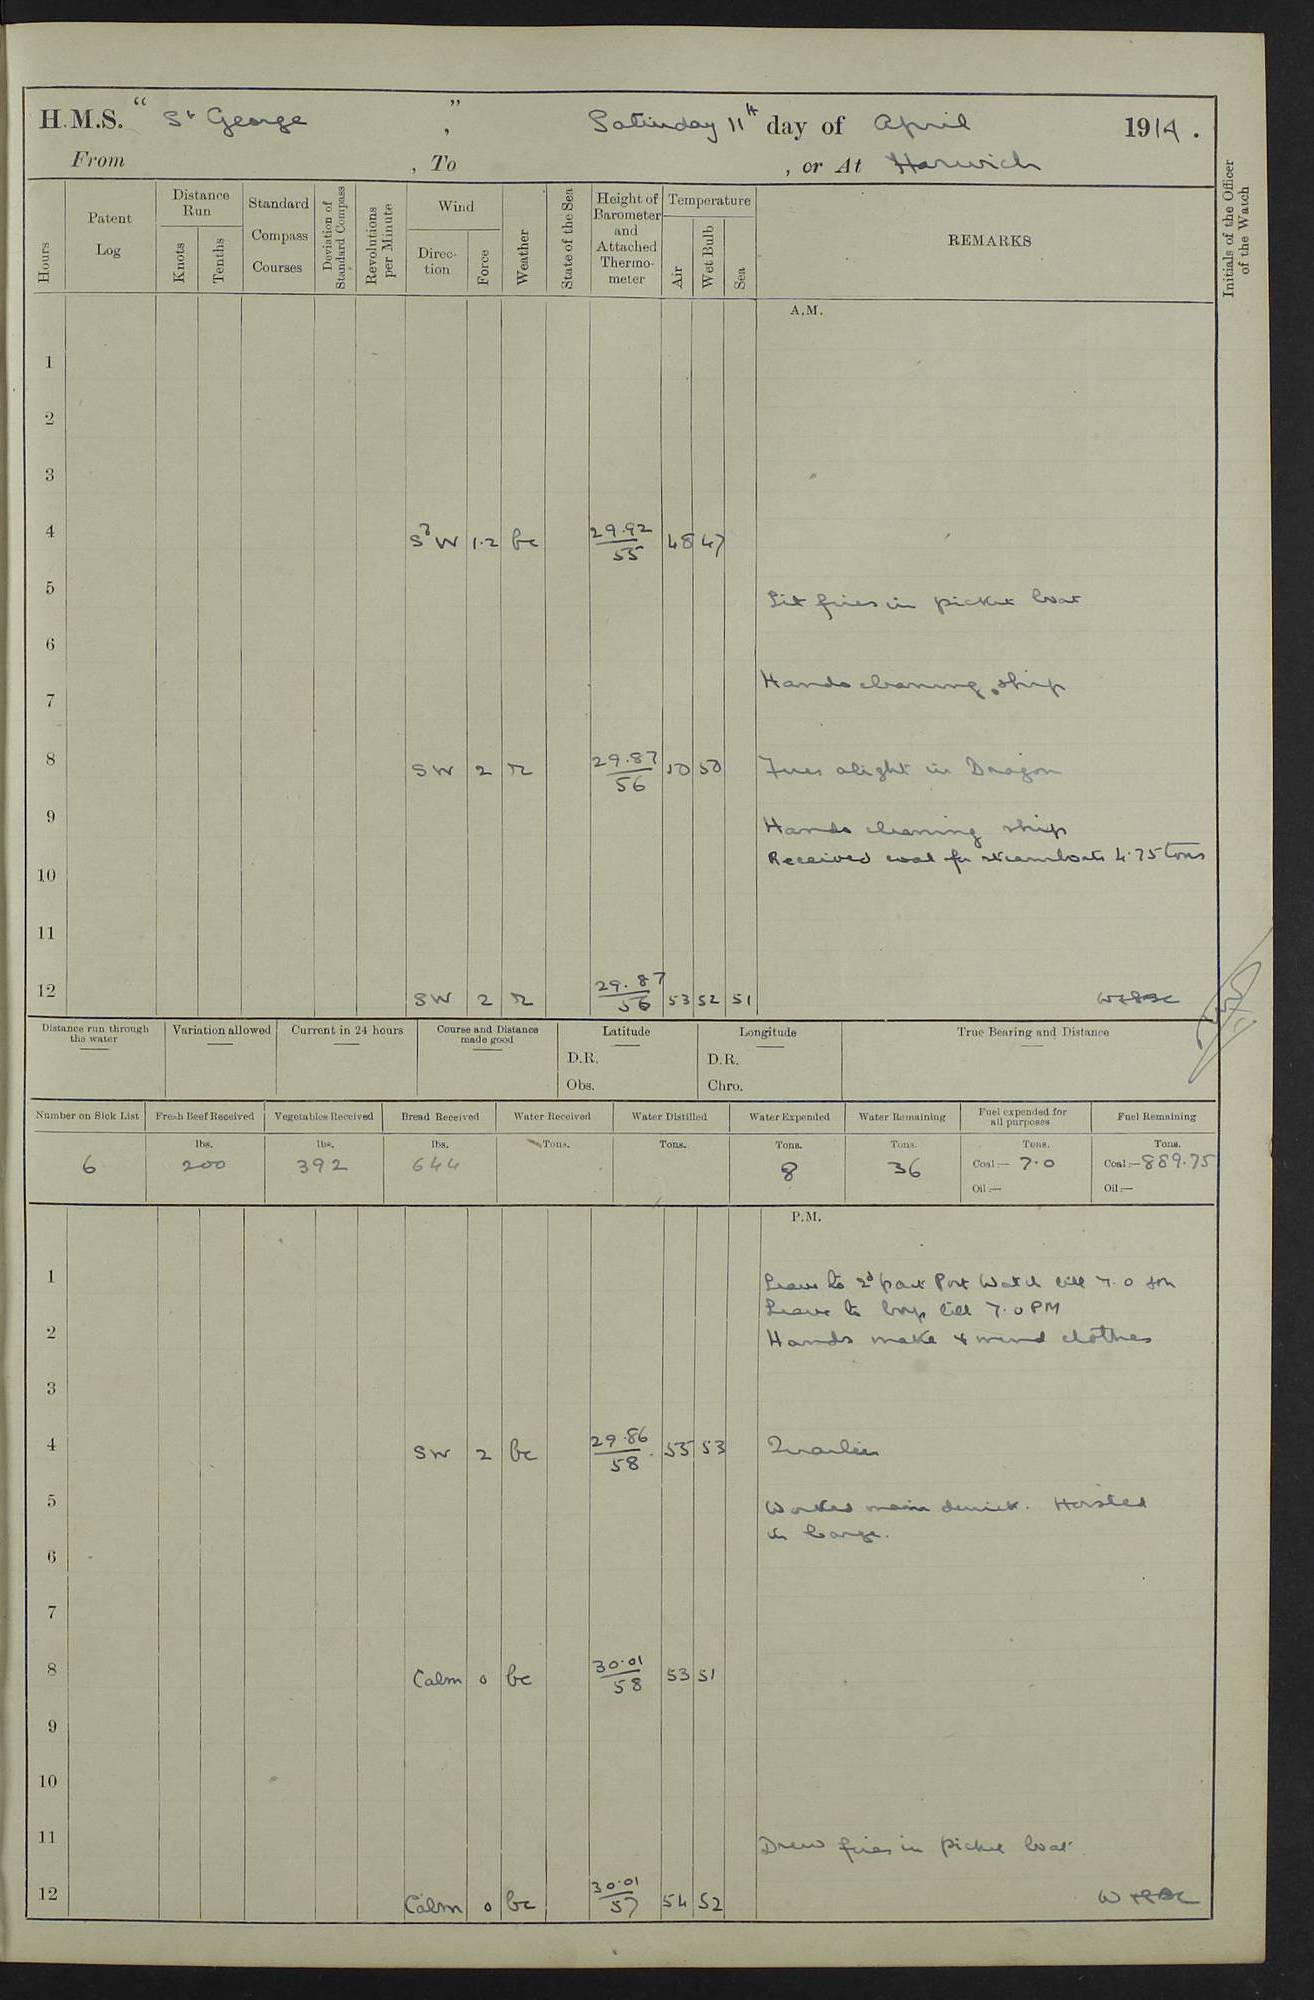 H.M.S. "St George", Saturday 11th day of April 1914.
From , To , or At Harwich
Hours
Patent Log
Distance Run
Knots
Tenths
Standard Compass Courses
Deviation of Standard Compass
Revolutions per Minute
Wind
Direction
Force
Weather
State of the Sea
Height of Barometer and Attached Thermometer
Temperature
Air
Wet Bulb
Sea
REMARKS
Initials of the Officer of the Watch
A.M.
1
2
3
4 SbW 1.2 bc 29.92/55 48 47
5 Lit fires in picket boat
6
Hands cleaning ship
7
8 SW 2 r 29.87/56 50 50 Fires alight in Dragon
9 Hands cleaning ship
Received coal for steamboats 4.75 tons
10
11
12 SW 2 r 29.87/56 53 52 51
Distance run through the water
Variation allowed
Current in 24 hours
Course and Distance made good
Latitude
D.R.
Obs.
Longitude
D.R.
Chro.
True Bearing and Distance
Number on Sick List 6
Fresh Beef Received lbs. 200
Vegetables Received lbs. 392
Bread Received lbs. 644
Water Received Tons.
Water Distilled Tons.
Water Expended Tons. 8
Water Remaining Tons. 36
Fuel expended for all purposes Tons. Coal:— 7.0 Oil:—
Fuel Remaining Tons. Coal:— 889.75 Oil:—
P.M.
1 Leave to 2d part Port Watch till 7.0
Leave to boys till 7.0 PM
2 Hands make & mend clothes
3
4 SW 2 bc 29.86/58 55 53 Quarters
5 Worked main derrick. Hoisted
in barge.
6
7
8 Calm 0 bc 30.01/58 53 51
9
10
11 Drew fires in picket boat
12 Calm 0 bc 30.01/57 54 52